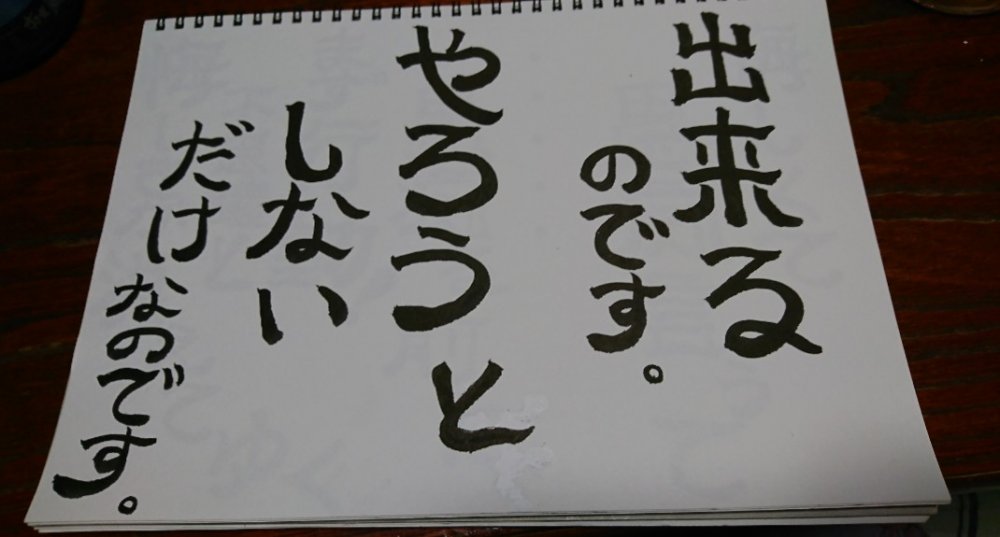 出来る
のです。
やろうと
しない
だけなのです。